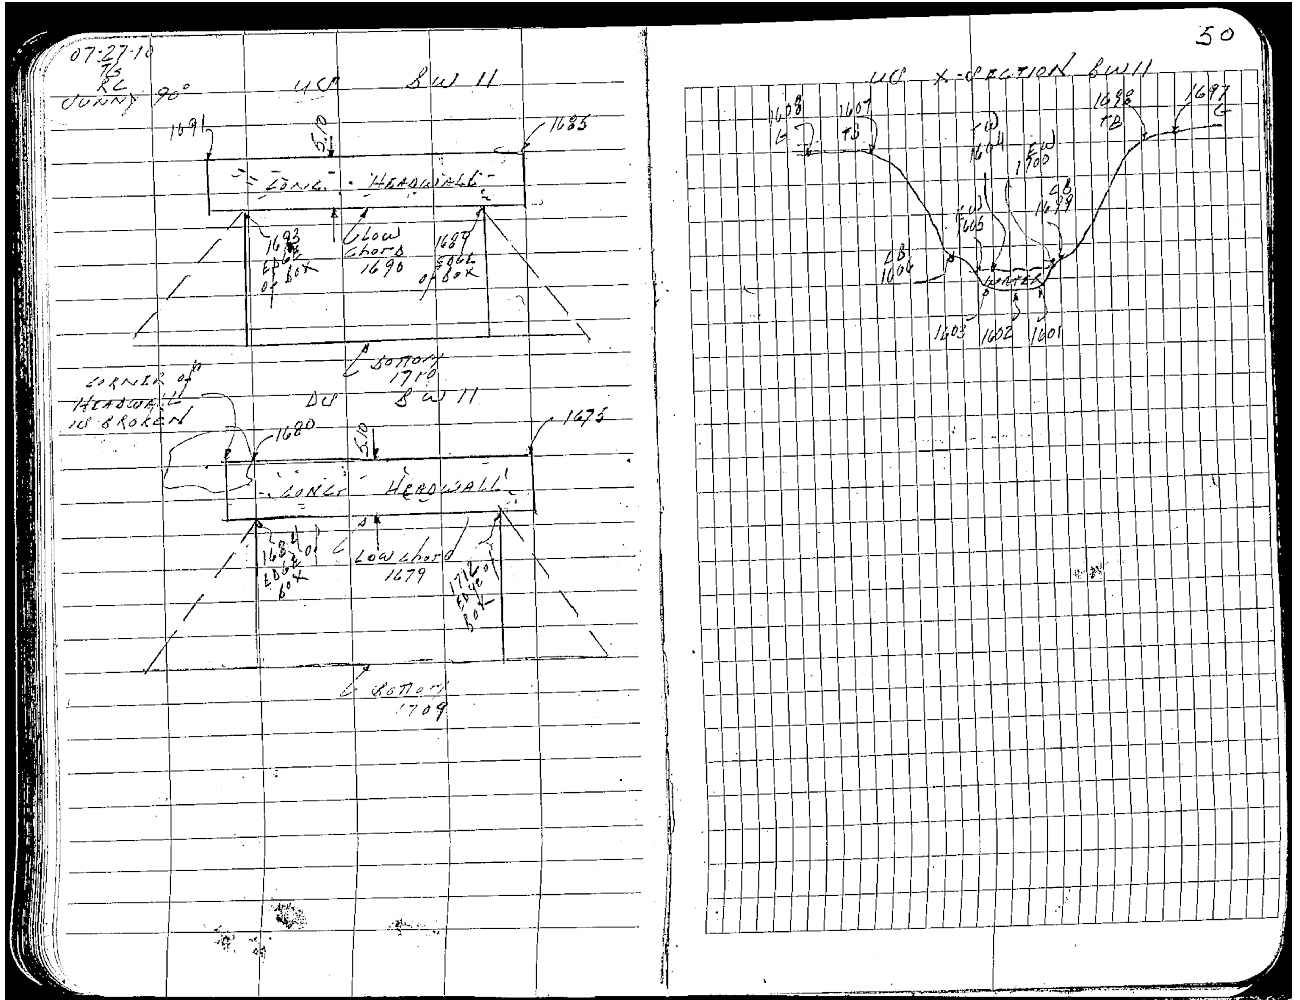 50
07-27-10
TS
RC
SUNNY 90°
US BW 11
1691
5.10
1685
CONC HEADWALL
1693
EDGE
OF
BOX
LOW
CHORD
1690
EDGE
OF BOX
BOTTOM
1710
CORNER OF
HEADWALL
IS BROKEN
DS BW 11
1680
5.10
1675
CONC HEADWALL
1684
EDGE OF
BOX
LOW CHORD
1679
1712
EDGE OF
BOX
BOTTOM
1709
US X-SECTION BW 11
1608
G
1607
TB
EW
1604
EW
1700
1698
TB
1697
G
EW
1605
EB
1699
EB
1606
WATER
1603 1602 1601